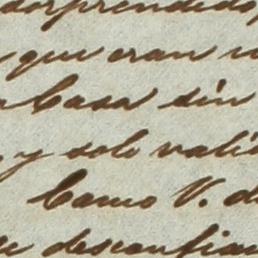 sorprendido,
que eran
Casa sin
y solo vali
Camo V. d
desconfian